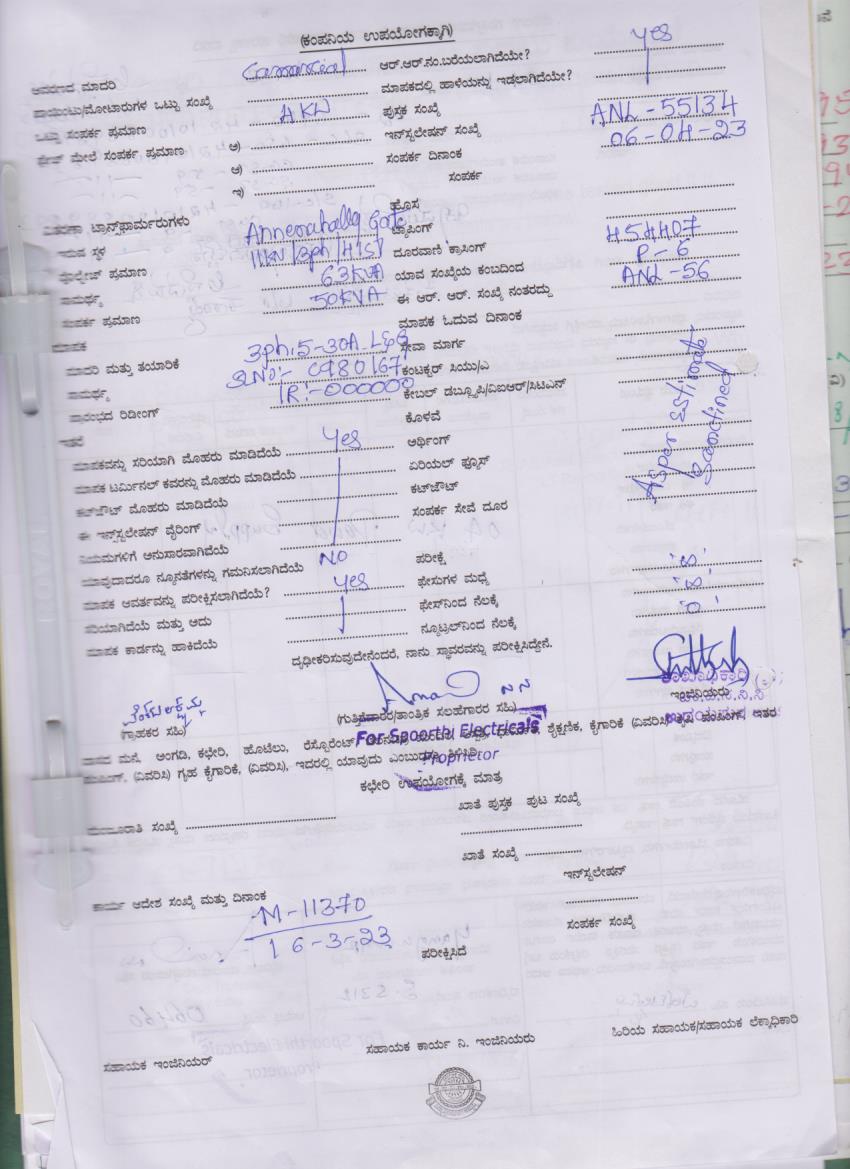 (ಕಂಪನಿಯ ಉಪಯೋಗಕ್ಕಾಗಿ)
ಆವರಣದ ಮಾದರಿ Comarcial ಆರ್.ಆರ್.ನಂ.ಬರೆಯಲಾಗಿದೆಯೇ? yes
ಪಾಯಿಂಟು/ಮೋಟಾರುಗಳ ಒಟ್ಟು ಸಂಖ್ಯೆ ಮಾಪಕದಲ್ಲಿ ಹಾಳೆಯನ್ನು ಇಡಲಾಗಿದೆಯೇ?
ಒಟ್ಟು ಸಂಪರ್ಕ ಪ್ರಮಾಣ 4KW ಪುಸ್ತಕ ಸಂಖ್ಯೆ ANL-55134
ಫೇಸ್ ಮೇಲೆ ಸಂಪರ್ಕ ಪ್ರಮಾಣ ಅ) ಇನ್‌ಸ್ಟಲೇಷನ್ ಸಂಖ್ಯೆ 06-04-23
ಆ) ಸಂಪರ್ಕ ದಿನಾಂಕ
ಇ) ಸಂಪರ್ಕ
ಹೊಸ
ವಿತರಣಾ ಟ್ರಾನ್ಸ್‌ಫಾರ್ಮರುಗಳು Annenahalla Gate ಟ್ಯಾಪಿಂಗ್
ಸ್ಥಳ 11KV/3ph/4 ದೂರವಾಣಿ ಕ್ರಾಸಿಂಗ್ 454407
ವೋಲ್ಟೇಜ್ ಪ್ರಮಾಣ 63KVA ಯಾವ ಸಂಖ್ಯೆಯ ಕಂಬದಿಂದ P-6
ಸಾಮರ್ಥ್ಯ 50KVA ಈ ಆರ್. ಆರ್. ಸಂಖ್ಯೆ ನಂತರದ್ದು ANL-56
ಸಂಪರ್ಕ ಪ್ರಮಾಣ ಮಾಪಕ ಓದುವ ದಿನಾಂಕ
ಮಾಪಕ 3ph.5-30A L&G ಸೇವಾ ಮಾರ್ಗ
ಮಾದರಿ ಮತ್ತು ತಯಾರಿಕೆ SLNO:- C980167 ಕಂಟಕ್ಟರ್ ಸಿಯು/ಎ
ಸಾಮರ್ಥ್ಯ IR:-000000 ಕೇಬಲ್ ಡಬ್ಲ್ಯೂಪಿ/ವಿಐಆರ್/ಸಿಟಿಎಸ್
ಪ್ರಾರಂಭದ ರಿಡೀಂಗ್ ಕೊಳವೆ
ಇತರೆ ಅರ್ಥಿಂಗ್
ಮಾಪಕವನ್ನು ಸರಿಯಾಗಿ ಮೊಹರು ಮಾಡಿದೆಯೆ yes ಏರಿಯಲ್ ಫ್ಯೂಸ್
ಮಾಪಕ ಟರ್ಮಿನಲ್ ಕವರನ್ನು ಮೊಹರು ಮಾಡಿದೆಯೆ ಕಟ್‌ಔಟ್
ಕಟ್‌ಔಟ್ ಮೊಹರು ಮಾಡಿದೆಯೆ ಸಂಪರ್ಕ ಸೇವೆ ದೂರ
Asper estimate
Sanctined
ಈ ಇನ್‌ಸ್ಟಲೇಷನ್ ವೈರಿಂಗ್
ನಿಯಮಗಳಿಗೆ ಅನುಸಾರವಾಗಿದೆಯೆ
ಯಾವುದಾದರೂ ನ್ಯೂನತೆಗಳನ್ನು ಗಮನಿಸಲಾಗಿದೆಯೆ NO ಪರೀಕ್ಷೆ
ಮಾಪಕ ಆವರ್ತವನ್ನು ಪರೀಕ್ಷಿಸಲಾಗಿದೆಯೆ? yes ಫೇಸುಗಳ ಮಧ್ಯೆ
ಸರಿಯಾಗಿದೆಯೆ ಮತ್ತು ಅದು ಫೇಸ್‌ನಿಂದ ನೆಲಕ್ಕೆ
ಮಾಪಕ ಕಾರ್ಡನ್ನು ಹಾಕಿದೆಯೆ ನ್ಯೂಟ್ರಲ್‌ನಿಂದ ನೆಲಕ್ಕೆ
ದೃಢೀಕರಿಸುವುದೇನೆಂದರೆ, ನಾನು ಸ್ಥಾವರವನ್ನು ಪರೀಕ್ಷಿಸಿದ್ದೇನೆ.
(ಗ್ರಾಹಕರ ಸಹಿ) (ಗುತ್ತಿಗೆದಾರರ/ತಾಂತ್ರಿಕ ಸಲಹೆಗಾರರ ಸಹಿ) ಇಂಜಿನಿಯರು
For Spoorthi Electricals
Proprietor
ವಾಸದ ಮನೆ, ಅಂಗಡಿ, ಕಛೇರಿ, ಹೋಟೆಲು, ರೆಸ್ಟೋರೆಂಟ್ ಶೈಕ್ಷಣಿಕ, ಕೈಗಾರಿಕೆ (ವಿವರಿಸಿ) ಕೃಷಿ ಪಂಪಿಂಗ್, ಇತರ
ಪಂಪಿಂಗ್, (ವಿವರಿಸಿ) ಗೃಹ ಕೈಗಾರಿಕೆ, (ವಿವರಿಸಿ), ಇದರಲ್ಲಿ ಯಾವುದು ಎಂಬುದನ್ನು ತಿಳಿಸಿರಿ.
ಕಛೇರಿ ಉಪಯೋಗಕ್ಕೆ ಮಾತ್ರ
ಮಂಜೂರಾತಿ ಸಂಖ್ಯೆ ಖಾತೆ ಪುಸ್ತಕ ಪುಟ ಸಂಖ್ಯೆ
ಖಾತೆ ಸಂಖ್ಯೆ
ಇನ್‌ಸ್ಟಲೇಷನ್
ಕಾರ್ಯ ಆದೇಶ ಸಂಖ್ಯೆ ಮತ್ತು ದಿನಾಂಕ
M-11370 ಸಂಪರ್ಕ ಸಂಖ್ಯೆ
16-3-23 ಪರೀಕ್ಷಿಸಿದೆ
ಸಹಾಯಕ ಇಂಜಿನಿಯರ್ ಸಹಾಯಕ ಕಾರ್ಯ ನಿ. ಇಂಜಿನಿಯರು ಹಿರಿಯ ಸಹಾಯಕ/ಸಹಾಯಕ ಲೆಕ್ಕಾಧಿಕಾರಿ